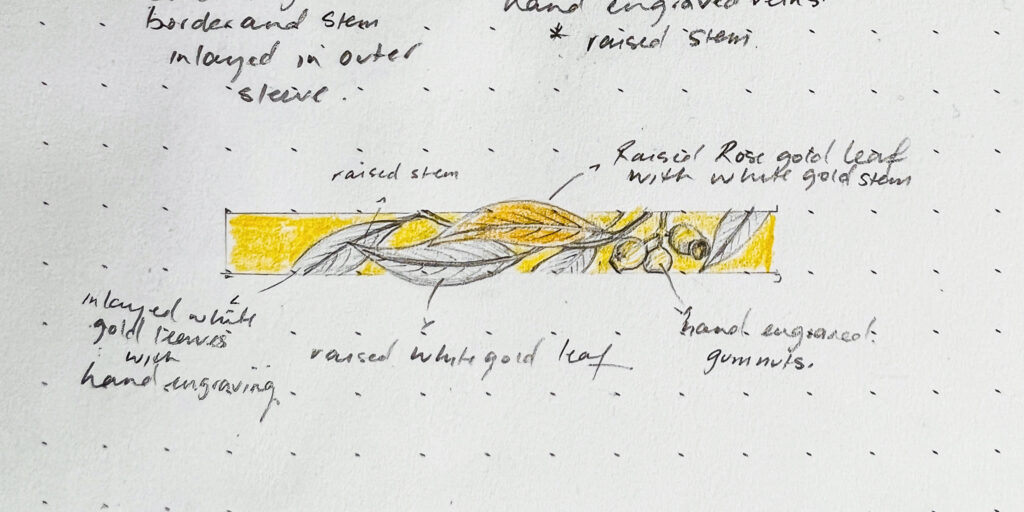 border and stem
inlayed in outer
sleeve.
hand engraved veins.
* raised stem
raised stem
Raised Rose gold leaf
with white gold stem
inlayed white
gold leaves
with
hand engraving.
raised white gold leaf
hand engraved
gumnuts.